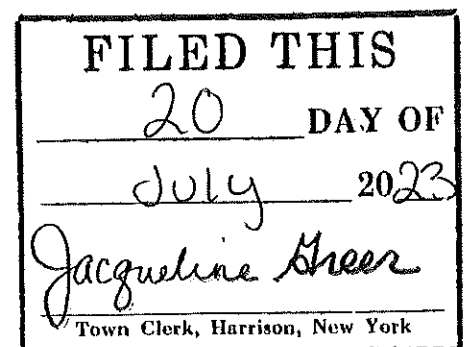 FILED THIS
20 DAY OF
July 2023
Jacqueline Greer
Town Clerk, Harrison, New York